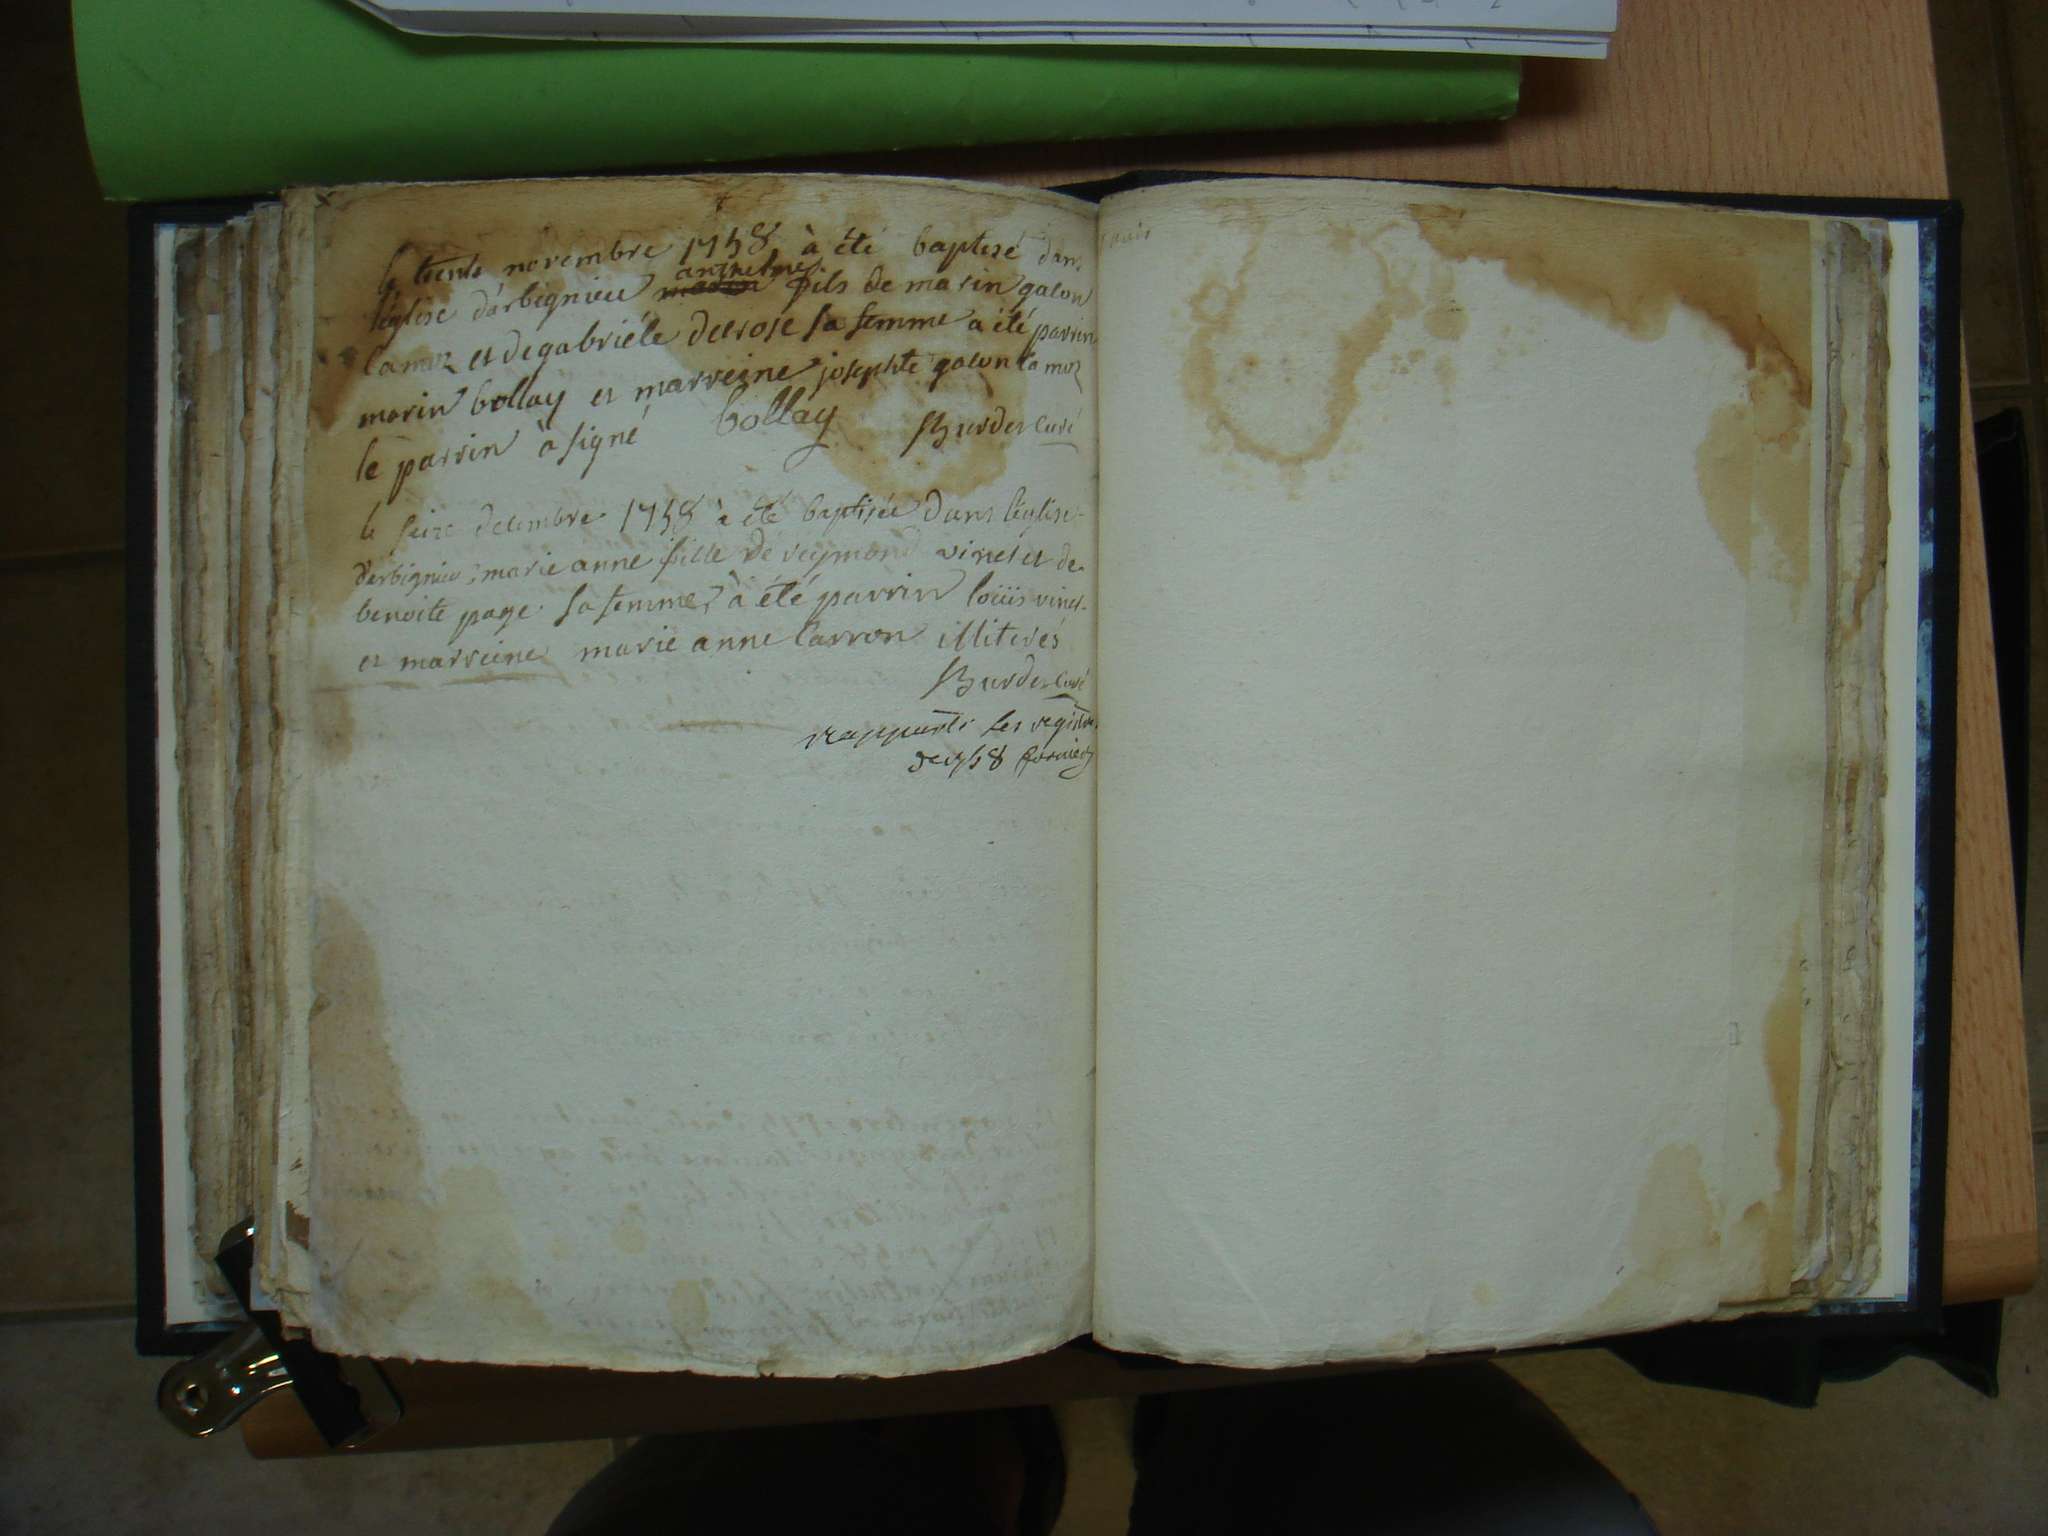 le trente novembre 1758 à été baptisé dans
l'église d'arbignieu anthelme fils de marin galon
lamoz et de gabriéle decrose sa femme a été parrin
marin bollay et marreine josephte galon lamoz
le parrin à signé bollay Burdet Curé
le seize decembre 1758 à été baptisée dans l'église
d'arbignieu marie anne fille de reymond vinet et de
benoite page sa femme, à été parrin loüis vinet
et marreine marie anne Carron illiterés
Burdet Curé
les registres
de 1758